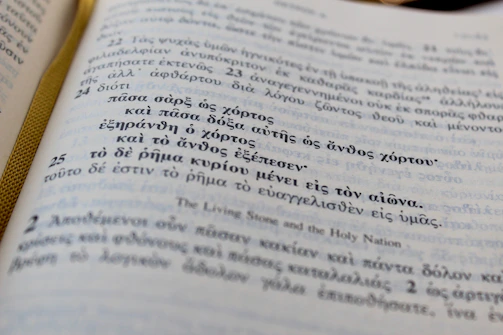 22 Τὰς ψυχὰς ὑμῶν ἡγνικότες ἐν τῇ ὑπακοῇ τῆς ἀληθείας εἰς
φιλαδελφίαν ἀνυπόκριτον ἐκ καθαρᾶς καρδίας ἀλλήλους
ἀγαπήσατε ἐκτενῶς 23 ἀναγεγεννημένοι οὐκ ἐκ σπορᾶς φθαρ
τῆς ἀλλ᾽ ἀφθάρτου διὰ λόγου ζῶντος θεοῦ καὶ μένοντο
24 διότι
πᾶσα σὰρξ ὡς χόρτος
καὶ πᾶσα δόξα αὐτῆς ὡς ἄνθος χόρτου·
ἐξηράνθη ὁ χόρτος
καὶ τὸ ἄνθος ἐξέπεσεν·
25 τὸ δὲ ῥῆμα κυρίου μένει εἰς τὸν αἰῶνα.
τοῦτο δέ ἐστιν τὸ ῥῆμα τὸ εὐαγγελισθὲν εἰς ὑμᾶς.
The Living Stone and the Holy Nation
2 Ἀποθέμενοι οὖν πᾶσαν κακίαν καὶ πάντα δόλον κα
κρίσεις καὶ φθόνους καὶ πάσας καταλαλιάς 2 ὡς ἀρτιγ
βρέφη τὸ λογικὸν ἄδολον γάλα ἐπιποθήσατε, ἵνα ἐ